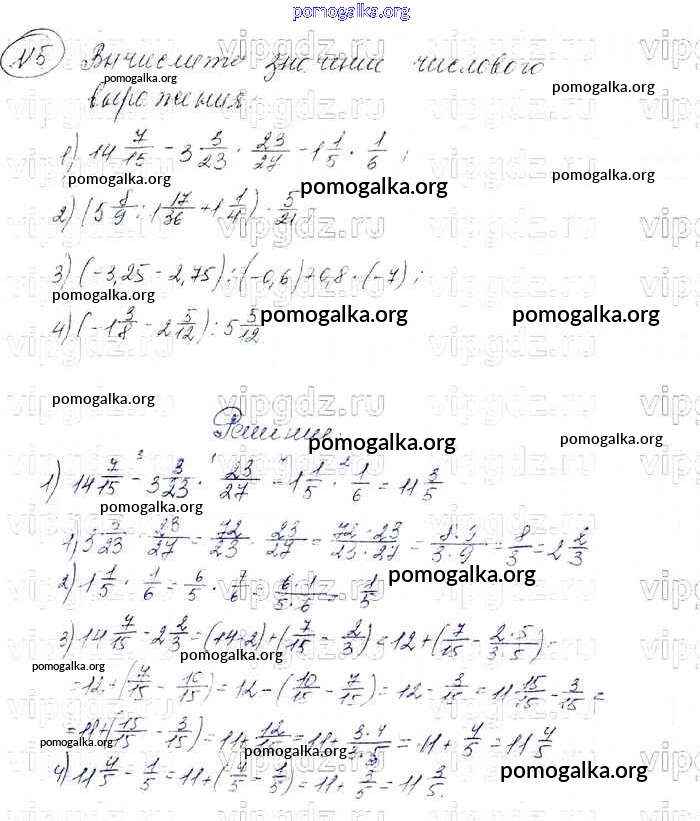 pomogalka.org
№5 Вычислите значение числового
pomogalka.org pomogalka.org
выражения:
1) 14 7/15 - 3 3/23 · 23/27 - 1 1/5 · 1/6 ;
pomogalka.org pomogalka.org pomogalka.org
2) (5 8/9 : 1 17/36 + 1 1/4) · 5/21 ;
3) (-3,25 - 2,75) : (-0,6) + 0,8 · (-7) ;
pomogalka.org
4) (-1 3/8 - 2 5/12) : 5 5/12
pomogalka.org pomogalka.org
vipgdz.ru
pomogalka.org pomogalka.org
Решение:
pomogalka.org
1) 14 7/15 - 3 3/23 · 23/27 - 1 1/5 · 1/6 = 11 3/5
pomogalka.org
1) 3 3/23 · 23/27 = 72/23 · 23/27 = 72·23/23·27 = 8·9/3·9 = 8/3 = 2 2/3
2) 1 1/5 · 1/6 = 6/5 · 1/6 = 6·1/5·6 = 1/5
pomogalka.org
3) 14 7/15 - 2 2/3 = (14-2) + (7/15 - 2/3) = 12 + (7/15 - 2·5/3·5) =
pomogalka.org pomogalka.org
= 12 + (7/15 - 10/15) = 12 - (10/15 - 7/15) = 12 - 3/15 = 11 15/15 - 3/15 =
= 11 + (15/15 - 3/15) = 11 + 12/15 = 11 + 3·4/3·5 = 11 + 4/5 = 11 4/5
pomogalka.org pomogalka.org
4) 11 4/5 - 1/5 = 11 + (4/5 - 1/5) = 11 + 3/5 = 11 3/5.
pomogalka.org